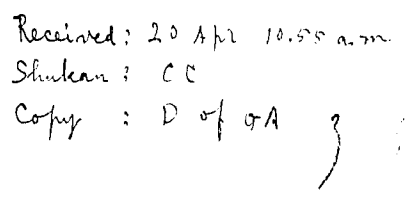 Received: 20 Apr 10.55 a.m.
Shukan : CC
Copy : D of GA